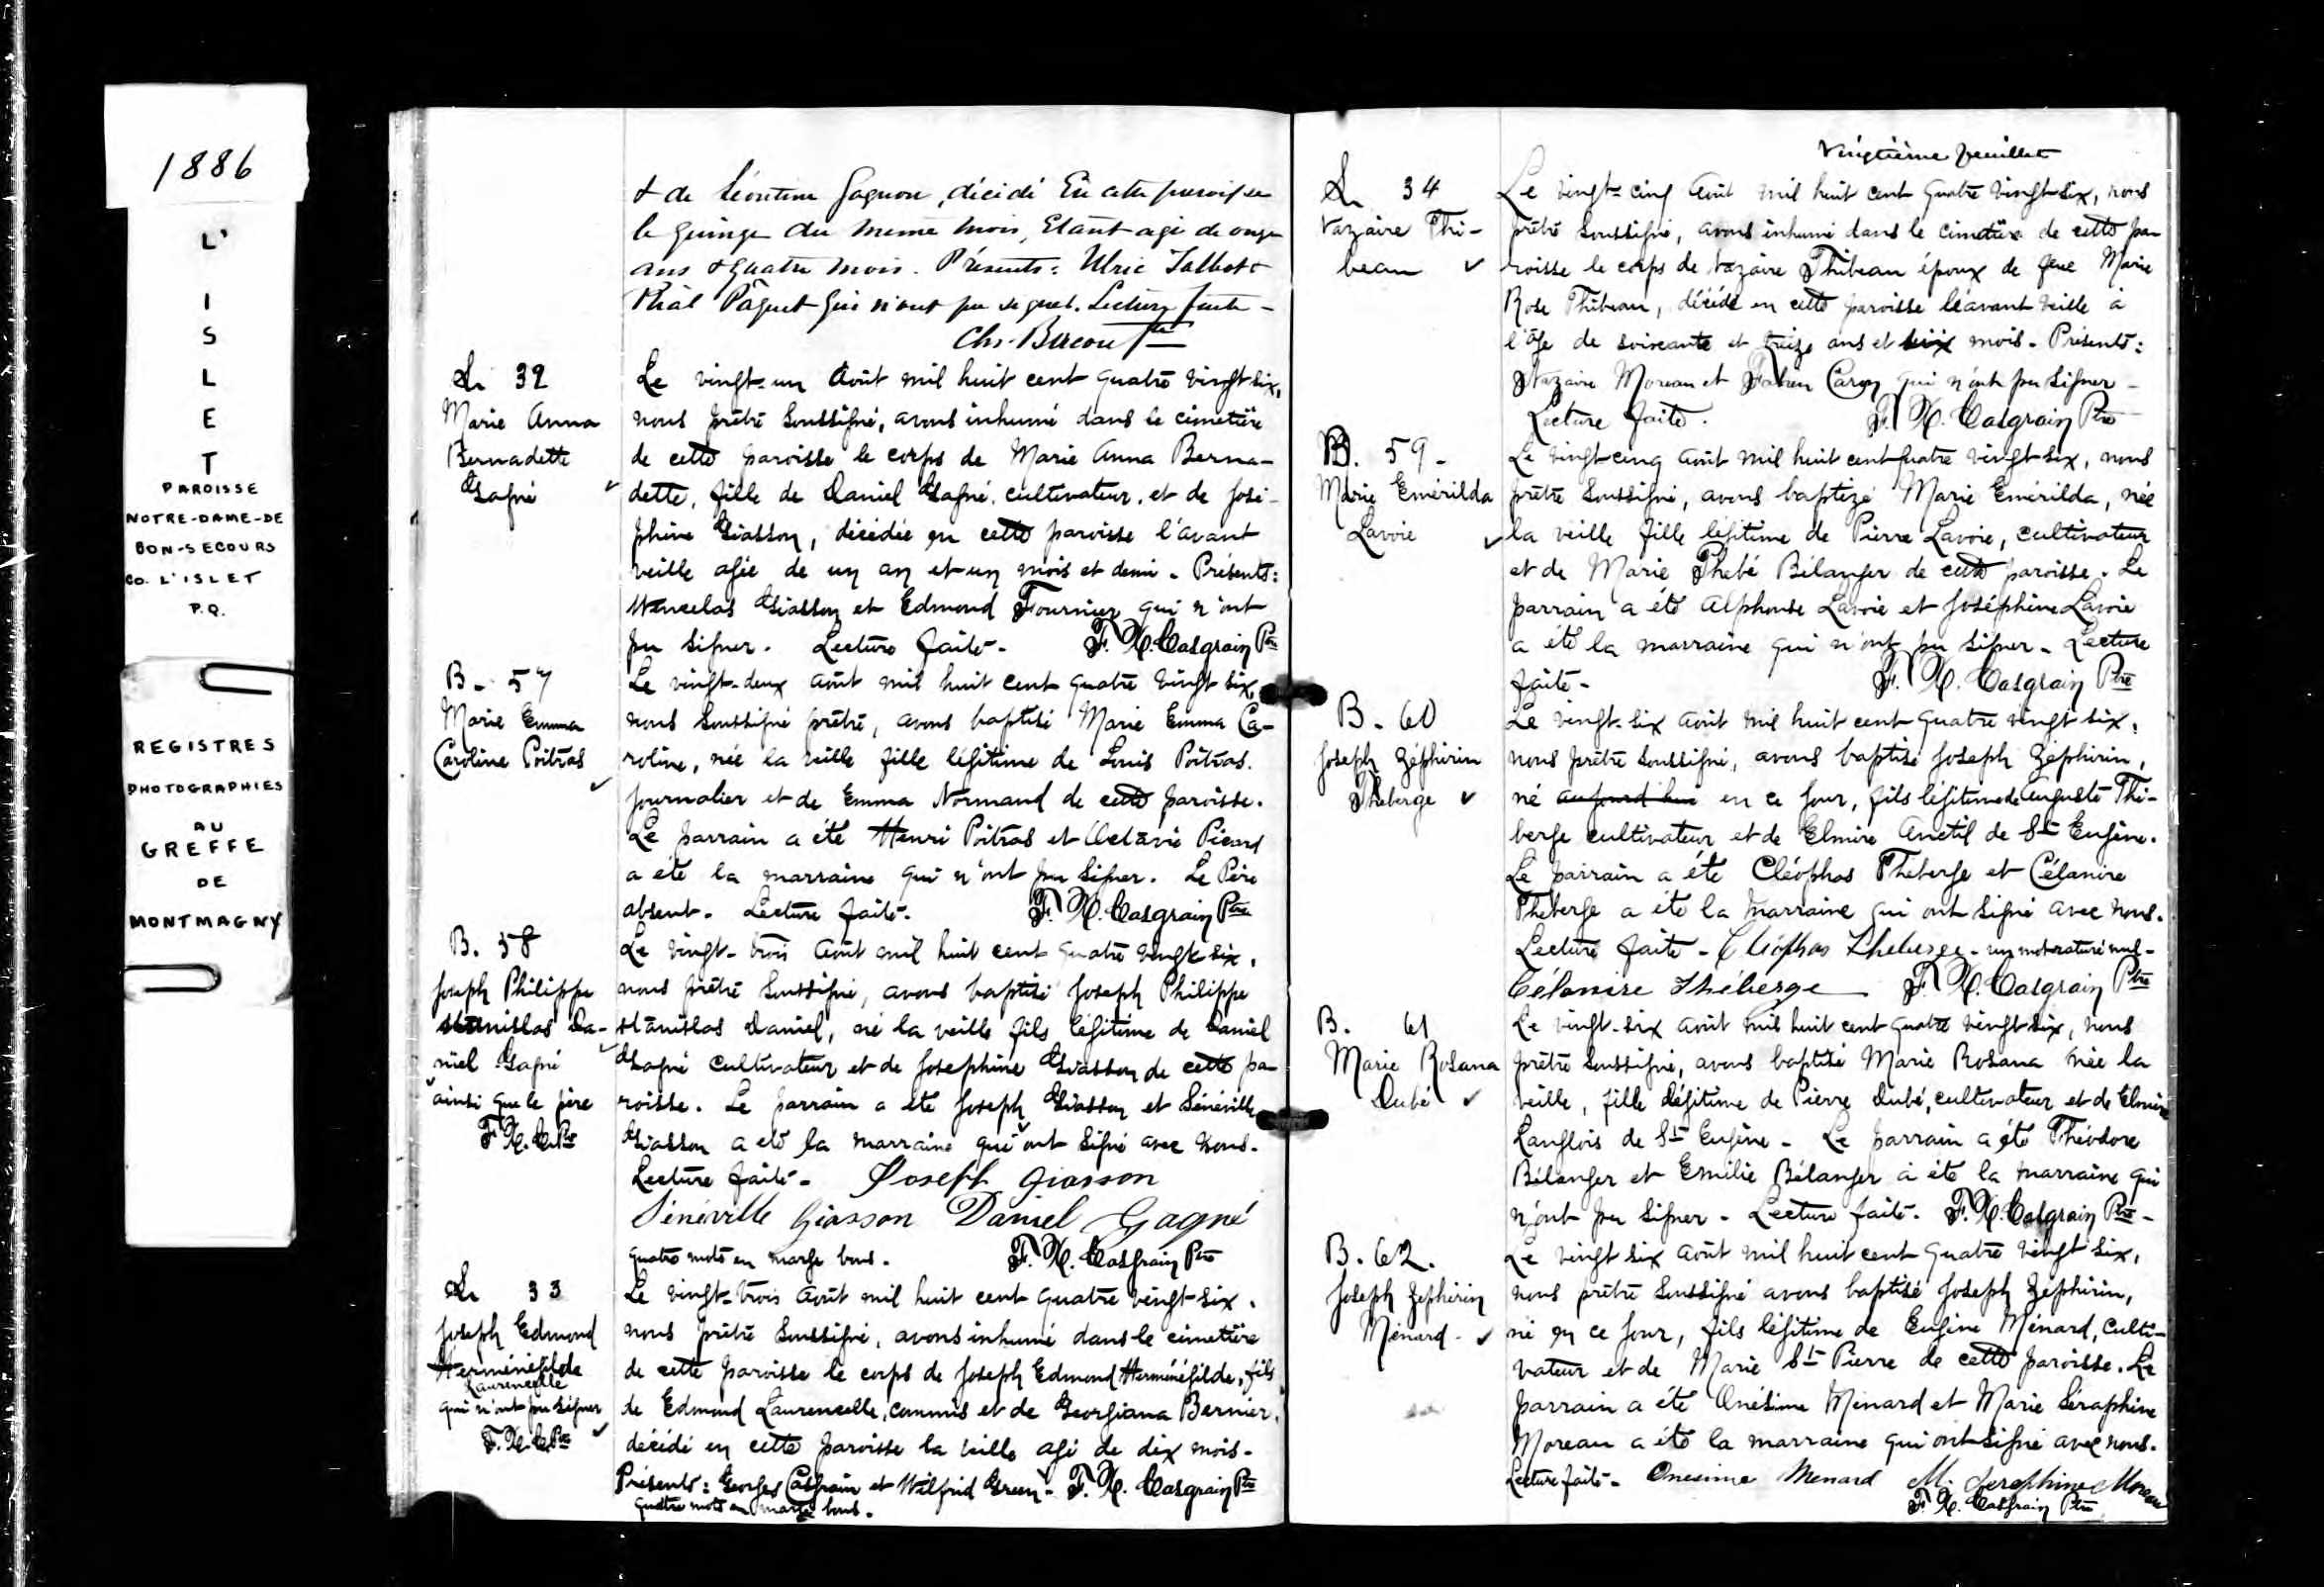 1886
L'
I
S
L
E
T
PAROISSE
NOTRE-DAME-DE
BON-SECOURS
CO. L'ISLET
P.Q.
REGISTRES
PHOTOGRAPHIES
AU
GREFFE
DE
MONTMAGNY
& de Léontine Gagnon, décédé En cette paroisse
le quinze du meme mois, Etant agé de onze
ans & quatre mois. Présents: Ulric Talbot &
Paquet qui n'ont pu signer. Lecture faite -
Chs. Bacon Ptre
S. 32
Marie Anna
Bernadette
Gagné
Le vingt-un Août mil huit cent quatre vingt six,
nous prêtre soussigné, avons inhumé dans le cimetière
de cette paroisse le corps de Marie Anna Berna-
dette, fille de Daniel Gagné, cultivateur, et de José-
phine Giasson, décédée en cette paroisse l'avant
veille agée de un an et un mois et demi. Présents:
Wencelas Giasson et Edmond Fournier qui n'ont
pu signer. Lecture faite. F. X. Casgrain Ptre
B. 57
Marie Emma
Caroline Poitras
Le vingt-deux août mil huit cent quatre vingt six,
nous soussigné prêtre, avons baptisé Marie Emma Ca-
roline, née la veille fille légitime de Louis Poitras,
journalier et de Emma Normand de cette paroisse.
Le parrain a été Henri Poitras et Octavie Picard
a été la marraine qui n'ont pu signer. Le Père
absent. Lecture faite. F. X. Casgrain Ptre
B. 58
Joseph Philippe
Stanislas Da-
niel Gagné
ainsi que le père
F. X. C. Ptre
Le vingt-trois août mil huit cent quatre vingt six,
nous prêtre soussigné, avons baptisé Joseph Philippe
Stanislas Daniel, né la veille fils légitime de Daniel
Gagné cultivateur et de Josephine Giasson de cette pa-
roisse. Le parrain a été Joseph Giasson et Sénéville
Giasson a été la marraine qui ont signé avec nous.
Lecture faite. Joseph Giasson
Sénéville Giasson Daniel Gagné
quatre mots en marge bons. F. X. Casgrain Ptre
S. 33
Joseph Edmond
Herménégilde
Laurencelle
qui n'ont pu signer
F. X. C. Ptre
Le vingt-trois Août mil huit cent quatre vingt six,
nous prêtre soussigné, avons inhumé dans le cimetière
de cette paroisse le corps de Joseph Edmond Herménégilde, fils
de Edmond Laurencelle, commis et de Georgiana Bernier,
décédé en cette paroisse la veille agé de dix mois.
Présents: Georges Casgrain et Wilfrid Green. F. X. Casgrain Ptre
quatre mots en marge bons.
Vingtième feuillet
S. 34
Nazaire Thi-
beau
Le vingt-cinq Août mil huit cent quatre vingt-six, nous
prêtre soussigné, avons inhumé dans le cimetière de cette pa-
roisse le corps de Nazaire Thibeau époux de feue Marie
Rose Thibeau, décédé en cette paroisse l'avant veille à
l'âge de soixante et treize ans et six mois. Présents:
Nazaire Moreau et Fabien Caron qui n'ont pu signer -
Lecture faite. F. X. Casgrain Ptre
B. 59 -
Marie Emérilda
Lavoie
Le vingt cinq août mil huit cent quatre vingt six, nous
prêtre soussigné, avons baptizé Marie Emérilda, née
la veille fille légitime de Pierre Lavoie, cultivateur
et de Marie Phebé Bélanger de cette paroisse. Le
parrain a été Alphonse Lavoie et Joséphine Lavoie
a été la marraine qui n'ont pu signer. Lecture
faite - F. X. Casgrain Ptre
B. 60
Joseph Zéphirin
Theberge
Le vingt-six août mil huit cent quatre vingt six,
nous prêtre soussigné, avons baptisé Joseph Zéphirin,
né aujourd'hui en ce jour, fils légitime de Auguste Thi-
berge cultivateur et de Elmire Anctil de St Eugène.
Le parrain a été Cléophas Theberge et Célanire
Theberge a été la marraine qui ont signé avec nous.
Lecture faite - Cléophas Theberge - un mot raturé nul -
Célanire Théberge F. X. Casgrain Ptre
B. 61
Marie Rosana
Dubé
Le vingt-six août mil huit cent quatre vingt six, nous
prêtre soussigné, avons baptisé Marie Rosana née la
veille, fille légitime de Pierre Dubé, cultivateur et de Elmire
Langlois de St Eugène. Le parrain a été Théodore
Bélanger et Emilie Bélanger a été la marraine qui
n'ont pu signer - Lecture faite. F. X. Casgrain Ptre -
B. 62.
Joseph Zephirin
Ménard -
Le vingt six août mil huit cent quatre vingt six,
nous prêtre soussigné avons baptisé Joseph Zéphirin,
né en ce jour, fils légitime de Eugène Ménard, culti-
vateur et de Marie St Pierre de cette paroisse. Le
parrain a été Onésime Ménard et Marie Séraphine
Moreau a été la marraine qui ont signé avec nous.
Lecture faite - Onesime Menard M. Seraphine Moreau
F. X. Casgrain Ptre